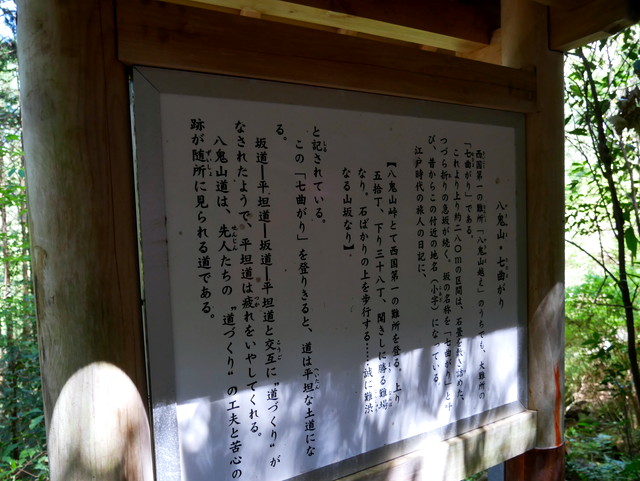 八鬼山・七曲がり
西国第一の難所「八鬼山越え」のうちでも、大難所の
「七曲がり」である。
これより上り約二八〇mの区間は、石畳を敷き詰めた、
つづら折りの急坂が続く。坂の名称を「七曲がり」と呼
び、昔からこの付近の地名(小字)になっている。
江戸時代の旅人の日記に、
【八鬼山峠とて西国第一の難所を登る。上り
五拾丁、下り三十八丁、聞きしに勝る難場
なり。石ばかりの上を歩行する……誠に難渋
なる山坂なり】
と記されている。
この「七曲がり」を登りきると、道は平坦な土道にな
る。
坂道―平坦道―坂道―平坦道と交互に“道づくり”が
なされたようで、平坦道は疲れをいやしてくれる。
八鬼山道は、先人たちの“道づくり”の工夫と苦心の
跡が随所に見られる道である。